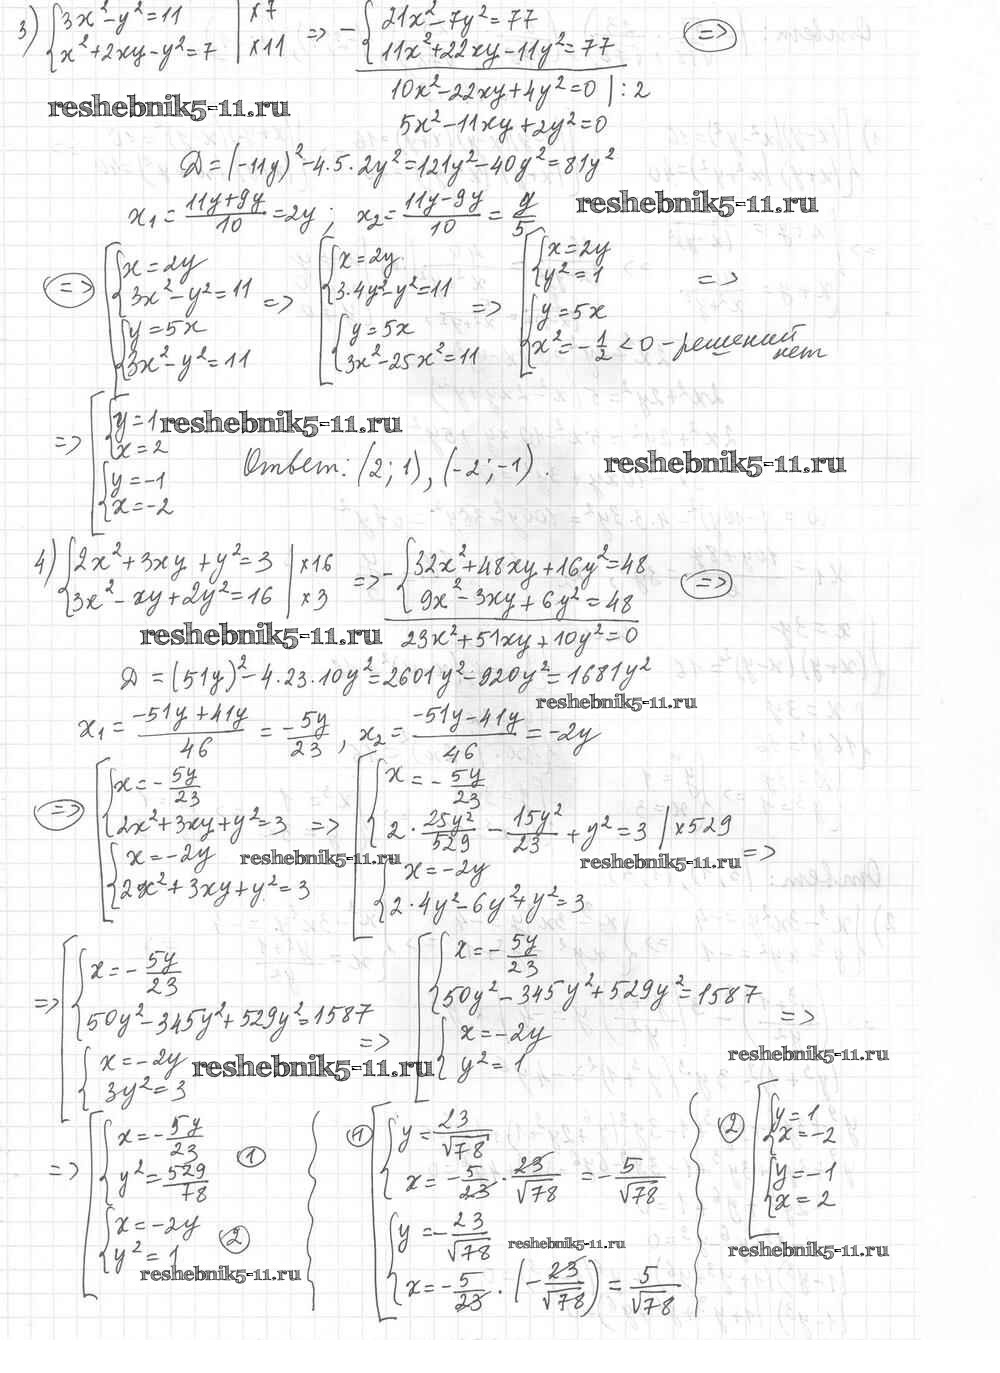 3) {3x²-y²=11 |×7 => - {21x²-7y²=77 =>
{x²+2xy-y²=7 |×11 {11x²+22xy-11y²=77
10x²-22xy+4y²=0 |:2
reshebnik5-11.ru
5x²-11xy+2y²=0
D=(-11y)²-4·5·2y²=121y²-40y²=81y²
x₁=(11y+9y)/10=2y; x₂=(11y-9y)/10=y/5
reshebnik5-11.ru
=> [{x=2y => [{x=2y => [{x=2y =>
{3x²-y²=11 {3·4y²-y²=11 {y²=1
{y=5x {y=5x {y=5x
{3x²-y²=11 {3x²-25x²=11 {x²=-1/2<0 - решений нет
=> [{y=1
{x=2
{y=-1
{x=-2
reshebnik5-11.ru
Ответ: (2;1), (-2;-1).
reshebnik5-11.ru
4) {2x²+3xy+y²=3 |×16 => - {32x²+48xy+16y²=48 =>
{3x²-xy+2y²=16 |×3 {9x²-3xy+6y²=48
reshebnik5-11.ru
23x²+51xy+10y²=0
D=(51y)²-4·23·10y²=2601y²-920y²=1681y²
reshebnik5-11.ru
x₁=(-51y+41y)/46=-5y/23, x₂=(-51y-41y)/46=-2y
=> [{x=-5y/23 => [{x=-5y/23
{2x²+3xy+y²=3 {2·25y²/529-15y²/23+y²=3 |×529 =>
{x=-2y {x=-2y
{2x²+3xy+y²=3 {2·4y²-6y²+y²=3
reshebnik5-11.ru
reshebnik5-11.ru
=> [{x=-5y/23 => [{x=-5y/23 =>
{50y²-345y²+529y²=1587 {50y²-345y²+529y²=1587
{x=-2y {x=-2y
{3y²=3 {y²=1
reshebnik5-11.ru
reshebnik5-11.ru
=> [{x=-5y/23 ①
{y²=529/78
{x=-2y ②
{y²=1
reshebnik5-11.ru
① [{y=23/√78
{x=-5/23·23/√78=-5/√78
{y=-23/√78
{x=-5/23·(-23/√78)=5/√78
reshebnik5-11.ru
② [{y=1
{x=-2
{y=-1
{x=2
reshebnik5-11.ru